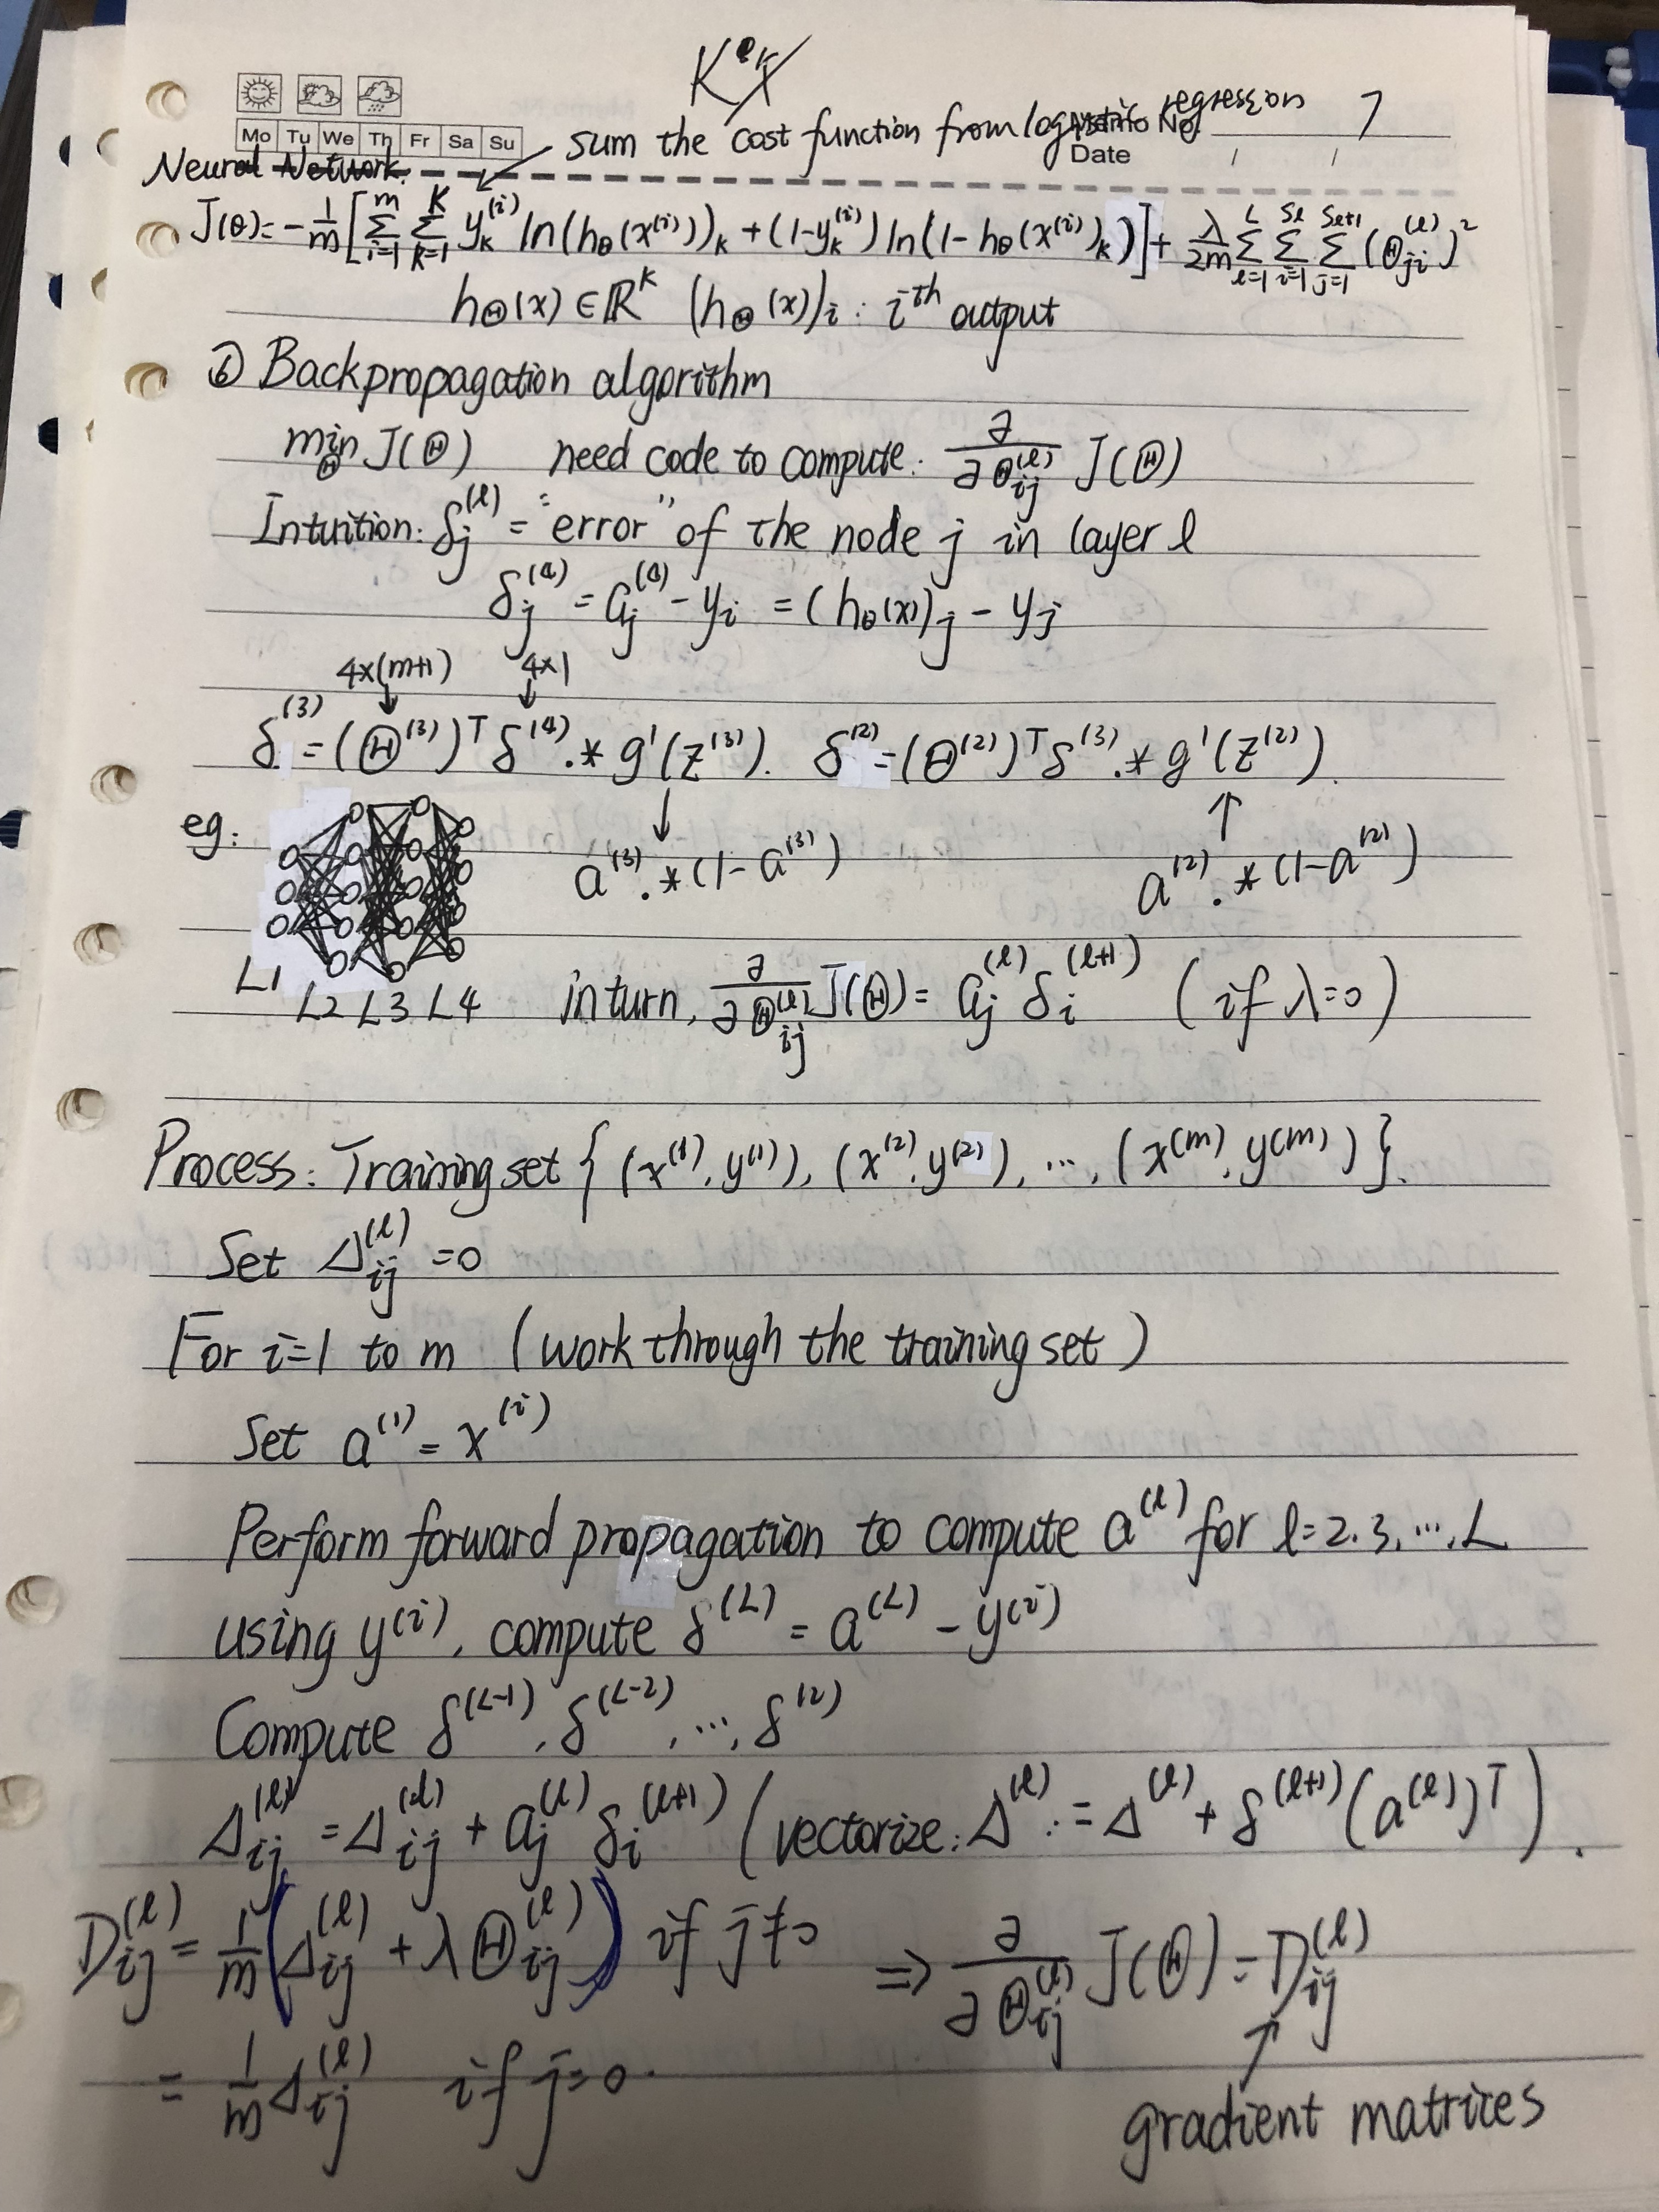 K
Mo Tu We Th Fr Sa Su
sum the cost function from logistic regression
Memo No. 7
Date / /
Neural Network.
J(θ)=-1/m[Σ_{i=1}^{m} Σ_{k=1}^{K} y_k^{(i)} ln(h_θ(x^{(i)}))_k + (1-y_k^{(i)}) ln(1-h_θ(x^{(i)})_k)] + λ/2m Σ_{l=1}^{L} Σ_{i=1}^{Sl} Σ_{j=1}^{Sl+1} (Θ_{ji}^{(l)})^2
h_Θ(x)∈ℝ^K (h_Θ(x))_i: i^th output
⑥ Backpropagation algorithm
min_Θ J(Θ) need code to compute: ∂/∂Θ_{ij}^{(l)} J(Θ)
Intuition: δ_j^{(l)} = "error" of the node j in layer l
δ_j^{(4)} = a_j^{(4)} - y_i = (h_θ(x))_j - y_j
4×(m+1) 4×1
δ^{(3)} = (Θ^{(3)})^T δ^{(4)} .* g'(z^{(3)}). δ^{(2)} = (Θ^{(2)})^T δ^{(3)} .* g'(z^{(2)}).
eg:
a^{(3)} .* (1-a^{(3)}) a^{(2)} .* (1-a^{(2)})
L1 L2 L3 L4
in turn, ∂/∂Θ_{ij}^{(l)} J(Θ) = a_j^{(l)} δ_i^{(l+1)} (if λ=0)
Process: Training set {(x^{(1)}, y^{(1)}), (x^{(2)}, y^{(2)}), ..., (x^{(m)}, y^{(m)})}.
Set Δ_{ij}^{(l)} = 0
For i=1 to m (work through the training set)
Set a^{(1)} = x^{(i)}
Perform forward propagation to compute a^{(l)} for l=2.3, ..., L
using y^{(i)}, compute δ^{(L)} = a^{(L)} - y^{(i)}
Compute δ^{(L-1)}, δ^{(L-2)}, ..., δ^{(2)}
Δ_{ij}^{(l)} = Δ_{ij}^{(l)} + a_j^{(l)} δ_i^{(l+1)} (vectorize: Δ^{(l)} := Δ^{(l)} + δ^{(l+1)} (a^{(l)})^T).
D_{ij}^{(l)} = 1/m (Δ_{ij}^{(l)} + λΘ_{ij}^{(l)}) if j≠0 ⇒ ∂/∂Θ_{ij}^{(l)} J(Θ) = D_{ij}^{(l)}
= 1/m Δ_{ij}^{(l)} if j=0.
gradient matrices